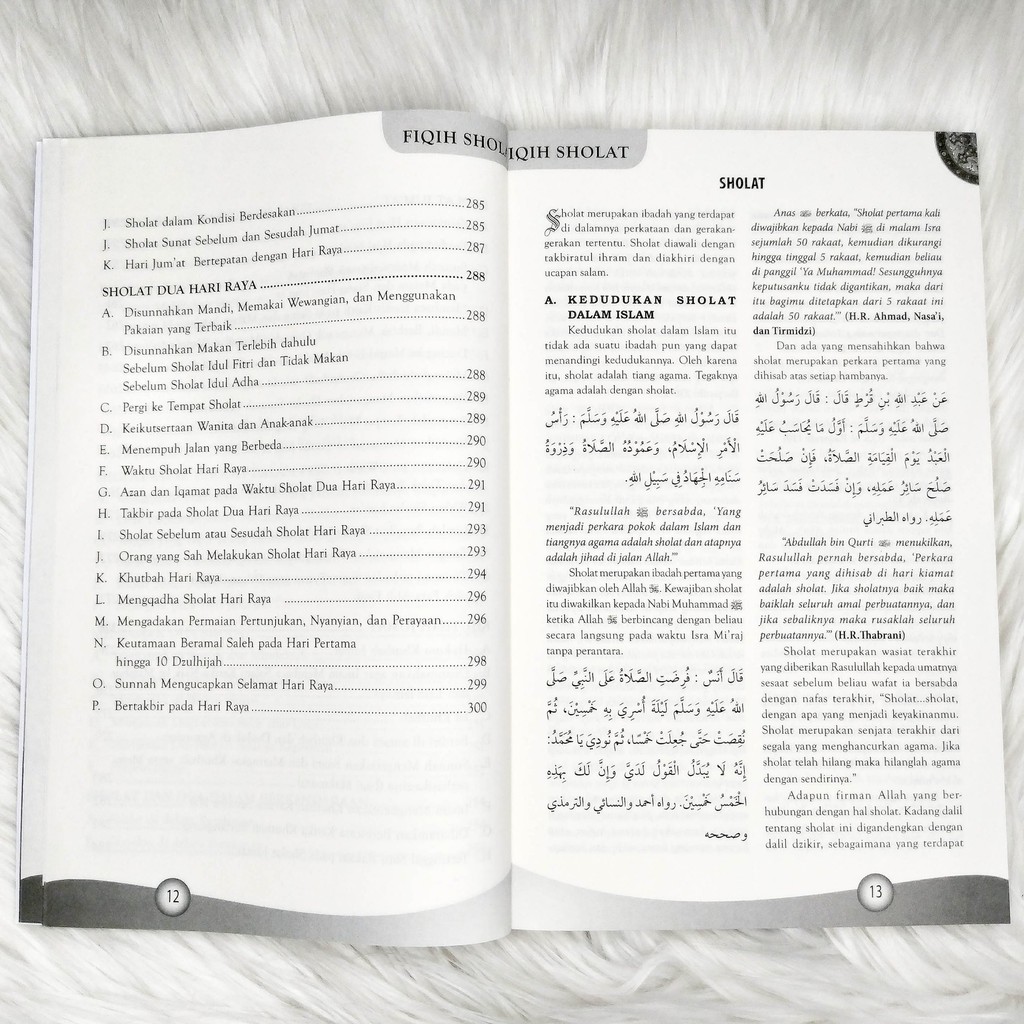 FIQIH SHOL
J. Sholat dalam Kondisi Berdesakan....285
J. Sholat Sunat Sebelum dan Sesudah Jumat....285
K. Hari Jum'at Bertepatan dengan Hari Raya....287
SHOLAT DUA HARI RAYA....288
A. Disunnahkan Mandi, Memakai Wewangian, dan Menggunakan
Pakaian yang Terbaik....288
B. Disunnahkan Makan Terlebih dahulu
Sebelum Sholat Idul Fitri dan Tidak Makan
Sebelum Sholat Idul Adha....288
C. Pergi ke Tempat Sholat....289
D. Keikutsertaan Wanita dan Anak-anak....289
E. Menempuh Jalan yang Berbeda....290
F. Waktu Sholat Hari Raya....290
G. Azan dan Iqamat pada Waktu Sholat Dua Hari Raya....291
H. Takbir pada Sholat Dua Hari Raya....291
I. Sholat Sebelum atau Sesudah Sholat Hari Raya....293
J. Orang yang Sah Melakukan Sholat Hari Raya....293
K. Khutbah Hari Raya....294
L. Mengqadha Sholat Hari Raya....296
M. Mengadakan Permaian Pertunjukan, Nyanyian, dan Perayaan....296
N. Keutamaan Beramal Saleh pada Hari Pertama
hingga 10 Dzulhijah....298
O. Sunnah Mengucapkan Selamat Hari Raya....299
P. Bertakbir pada Hari Raya....300
12
IQIH SHOLAT
SHOLAT
Sholat merupakan ibadah yang terdapat
di dalamnya perkataan dan gerakan-
gerakan tertentu. Sholat diawali dengan
takbiratul ihram dan diakhiri dengan
ucapan salam.
A. KEDUDUKAN SHOLAT
DALAM ISLAM
Kedudukan sholat dalam Islam itu
tidak ada suatu ibadah pun yang dapat
menandingi kedudukannya. Oleh karena
itu, sholat adalah tiang agama. Tegaknya
agama adalah dengan sholat.
قَالَ رَسُوْلُ اللهِ صَلَّى اللهُ عَلَيْهِ وَسَلَّمَ : رَأْسُ
الْأَمْرِ الْإِسْلَامُ، وَعَمُوْدُهُ الصَّلَاةُ وَذِرْوَةُ
سَنَامِهِ الْجِهَادُ فِي سَبِيْلِ اللهِ.
"Rasulullah ﷺ bersabda, 'Yang
menjadi perkara pokok dalam Islam dan
tiangnya agama adalah sholat dan atapnya
adalah jihad di jalan Allah.'"
Sholat merupakan ibadah pertama yang
diwajibkan oleh Allah ﷻ. Kewajiban sholat
itu diwakilkan kepada Nabi Muhammad ﷺ
ketika Allah ﷻ berbincang dengan beliau
secara langsung pada waktu Isra Mi'raj
tanpa perantara.
قَالَ أَنَسٌ : فُرِضَتِ الصَّلَاةُ عَلَى النَّبِيِّ صَلَّى
اللهُ عَلَيْهِ وَسَلَّمَ لَيْلَةَ أُسْرِيَ بِهِ خَمْسِيْنَ، ثُمَّ
نُقِصَتْ حَتَّى جُعِلَتْ خَمْسًا، ثُمَّ نُوْدِيَ يَا مُحَمَّدُ:
إِنَّهُ لَا يُبَدَّلُ الْقَوْلُ لَدَيَّ وَإِنَّ لَكَ بِهَذِهِ
الْخَمْسُ خَمْسِيْنَ. رواه أحمد والنسائي والترمذي
وصححه
Anas ﷺ berkata, "Sholat pertama kali
diwajibkan kepada Nabi ﷺ di malam Isra
sejumlah 50 rakaat, kemudian dikurangi
hingga tinggal 5 rakaat, kemudian beliau
di panggil 'Ya Muhammad! Sesungguhnya
keputusanku tidak digantikan, maka dari
itu bagimu ditetapkan dari 5 rakaat ini
adalah 50 rakaat.'" (H.R. Ahmad, Nasa'i,
dan Tirmidzi)
Dan ada yang mensahihkan bahwa
sholat merupakan perkara pertama yang
dihisab atas setiap hambanya.
عَنْ عَبْدِ اللهِ بْنِ قُرْطٍ قَالَ : قَالَ رَسُوْلُ اللهِ
صَلَّى اللهُ عَلَيْهِ وَسَلَّمَ : أَوَّلُ مَا يُحَاسَبُ عَلَيْهِ
الْعَبْدُ يَوْمَ الْقِيَامَةِ الصَّلَاةُ، فَإِنْ صَلُحَتْ
صَلُحَ سَائِرُ عَمَلِهِ، وَإِنْ فَسَدَتْ فَسَدَ سَائِرُ
عَمَلِهِ. رواه الطبراني
"Abdullah bin Qurti menukilkan,
Rasulullah pernah bersabda, 'Perkara
pertama yang dihisab di hari kiamat
adalah sholat. Jika sholatnya baik maka
baiklah seluruh amal perbuatannya, dan
jika sebaliknya maka rusaklah seluruh
perbuatannya.'" (H.R.Thabrani)
Sholat merupakan wasiat terakhir
yang diberikan Rasulullah kepada umatnya
sesaat sebelum beliau wafat ia bersabda
dengan nafas terakhir, "Sholat...sholat,
dengan apa yang menjadi keyakinanmu.
Sholat merupakan senjata terakhir dari
segala yang menghancurkan agama. Jika
sholat telah hilang maka hilanglah agama
dengan sendirinya."
Adapun firman Allah yang ber-
hubungan dengan hal sholat. Kadang dalil
tentang sholat ini digandengkan dengan
dalil dzikir, sebagaimana yang terdapat
13